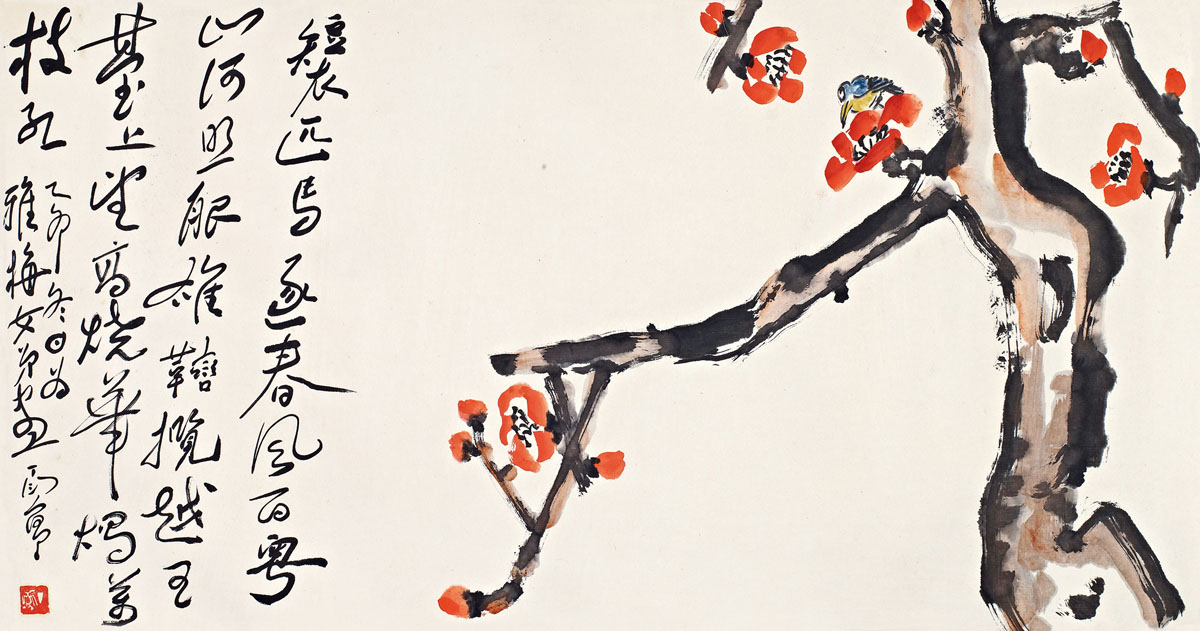 短衣匹馬逐春風百粵
山河照眼雄攬越王
臺上望高燒華燭萬
枝紅
乙卯冬日為
雅梅女弟畫